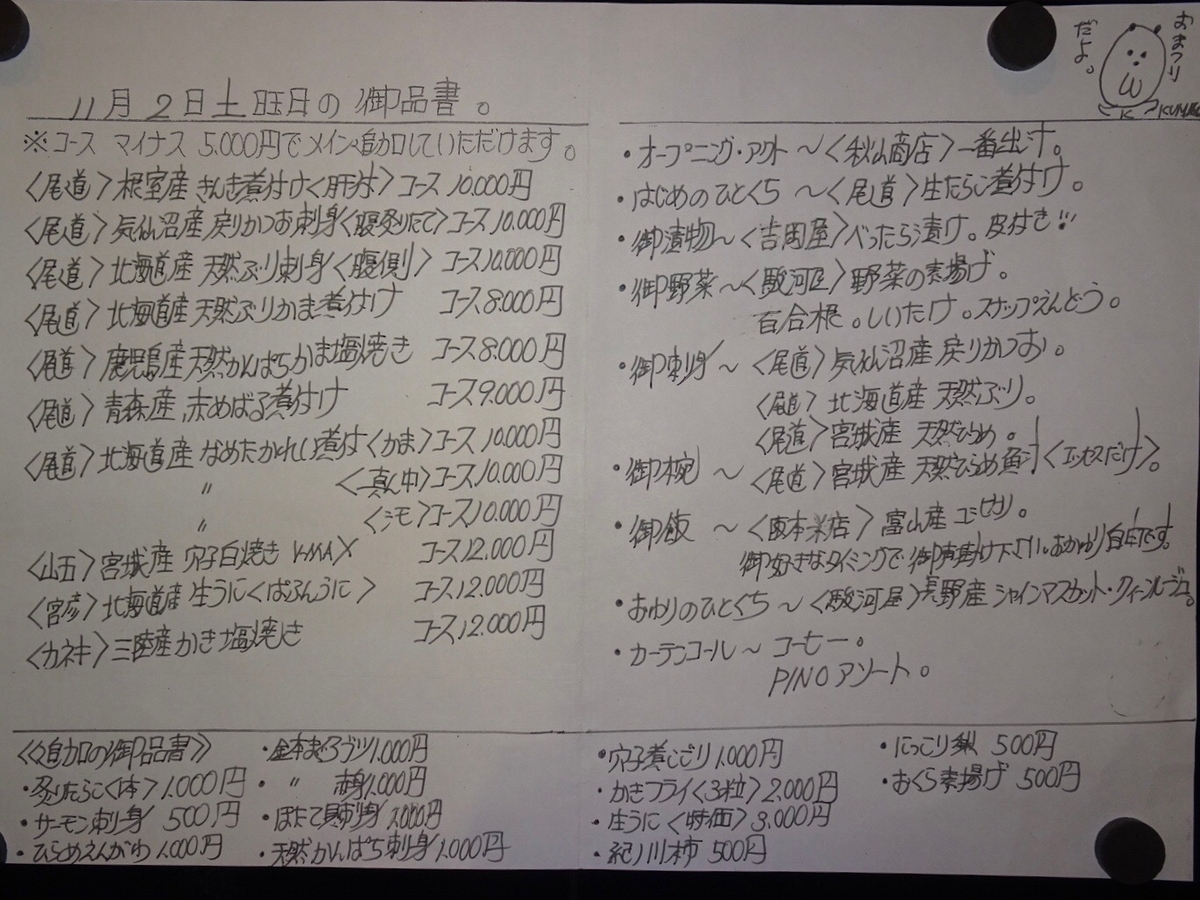 11月2日土曜日の御品書。
※コース マイナス 5.000円でメイン追加していただけます。
〈尾道〉根室産 きんき煮付け〈肝付〉コース 10.000円
〈尾道〉気仙沼産 戻りかつお刺身〈腹炙りたて〉コース 10.000円
〈尾道〉北海道産 天然ぶり刺身〈腹側〉 コース10.000円
〈尾道〉北海道産 天然ぶりかま煮付け コース8.000円
〈尾道〉鹿児島産天然かんぱちかま塩焼き コース8.000円
〈尾道〉青森産、赤めばる煮付け コース9.000円
〈尾道〉北海道産 なめたかれい煮付〈かま〉コース 10.000円
〃 〈真ん中〉コース10.000円
〃 〈シモ〉コース10.000円
〈山五〉宮城産 穴子白焼き KMAX コース12.000円
〈宮彦〉北海道産 生うに〈ばふんうに〉 コース12.000円
〈カネキ〉三陸産かき塩焼き コース12.000円
おまつり
だよ。
・オープニング・アクト ～〈秋山商店〉一番出汁。
・はじめのひとくち ～〈尾道〉生たらこ煮付け。
・御漬物～〈吉岡屋〉べったら漬け。皮付き!!!
・御野菜～〈駿河屋〉野菜の素揚げ。
百合根。しいたけ。スナップえんどう。
・御刺身～〈尾道〉気仙沼産 戻りかつお。
〈尾道〉北海道産 天然ぶり。
〈尾道〉宮城産 天然ひらめ。
・御椀 ～〈尾道〉宮城産 天然ひらめ魚汁〈エッセスだけ〉。
・御飯 ～〈阪本米店〉富山産 コシヒカリ。
御好きなタイミングで御声掛け下さい。おかわり自由です。
・おわりのひとくち ～〈駿河屋〉長野産 シャインマスカット・クィーンルージュ。
・カーテンコール～ コーヒー。
PINO アソート。
《追加の御品書》
・炙りたらこ〈1本〉1.000円
・サーモン刺身 500円
・ひらめえんがわ 1.000円
・金本まぐろヅケ1.000円
・〃 赤身1.000円
・ほたて貝刺身 1.000円
・天然かんぱち刺身 1.000円
・穴子煮こごり 1.000円
・かきフライ〈3粒〉2,000円
・生うに〈特価〉3,000円
・紀ノ川柿 500円
・にっこり梨 500円
・おくら素揚げ 500円